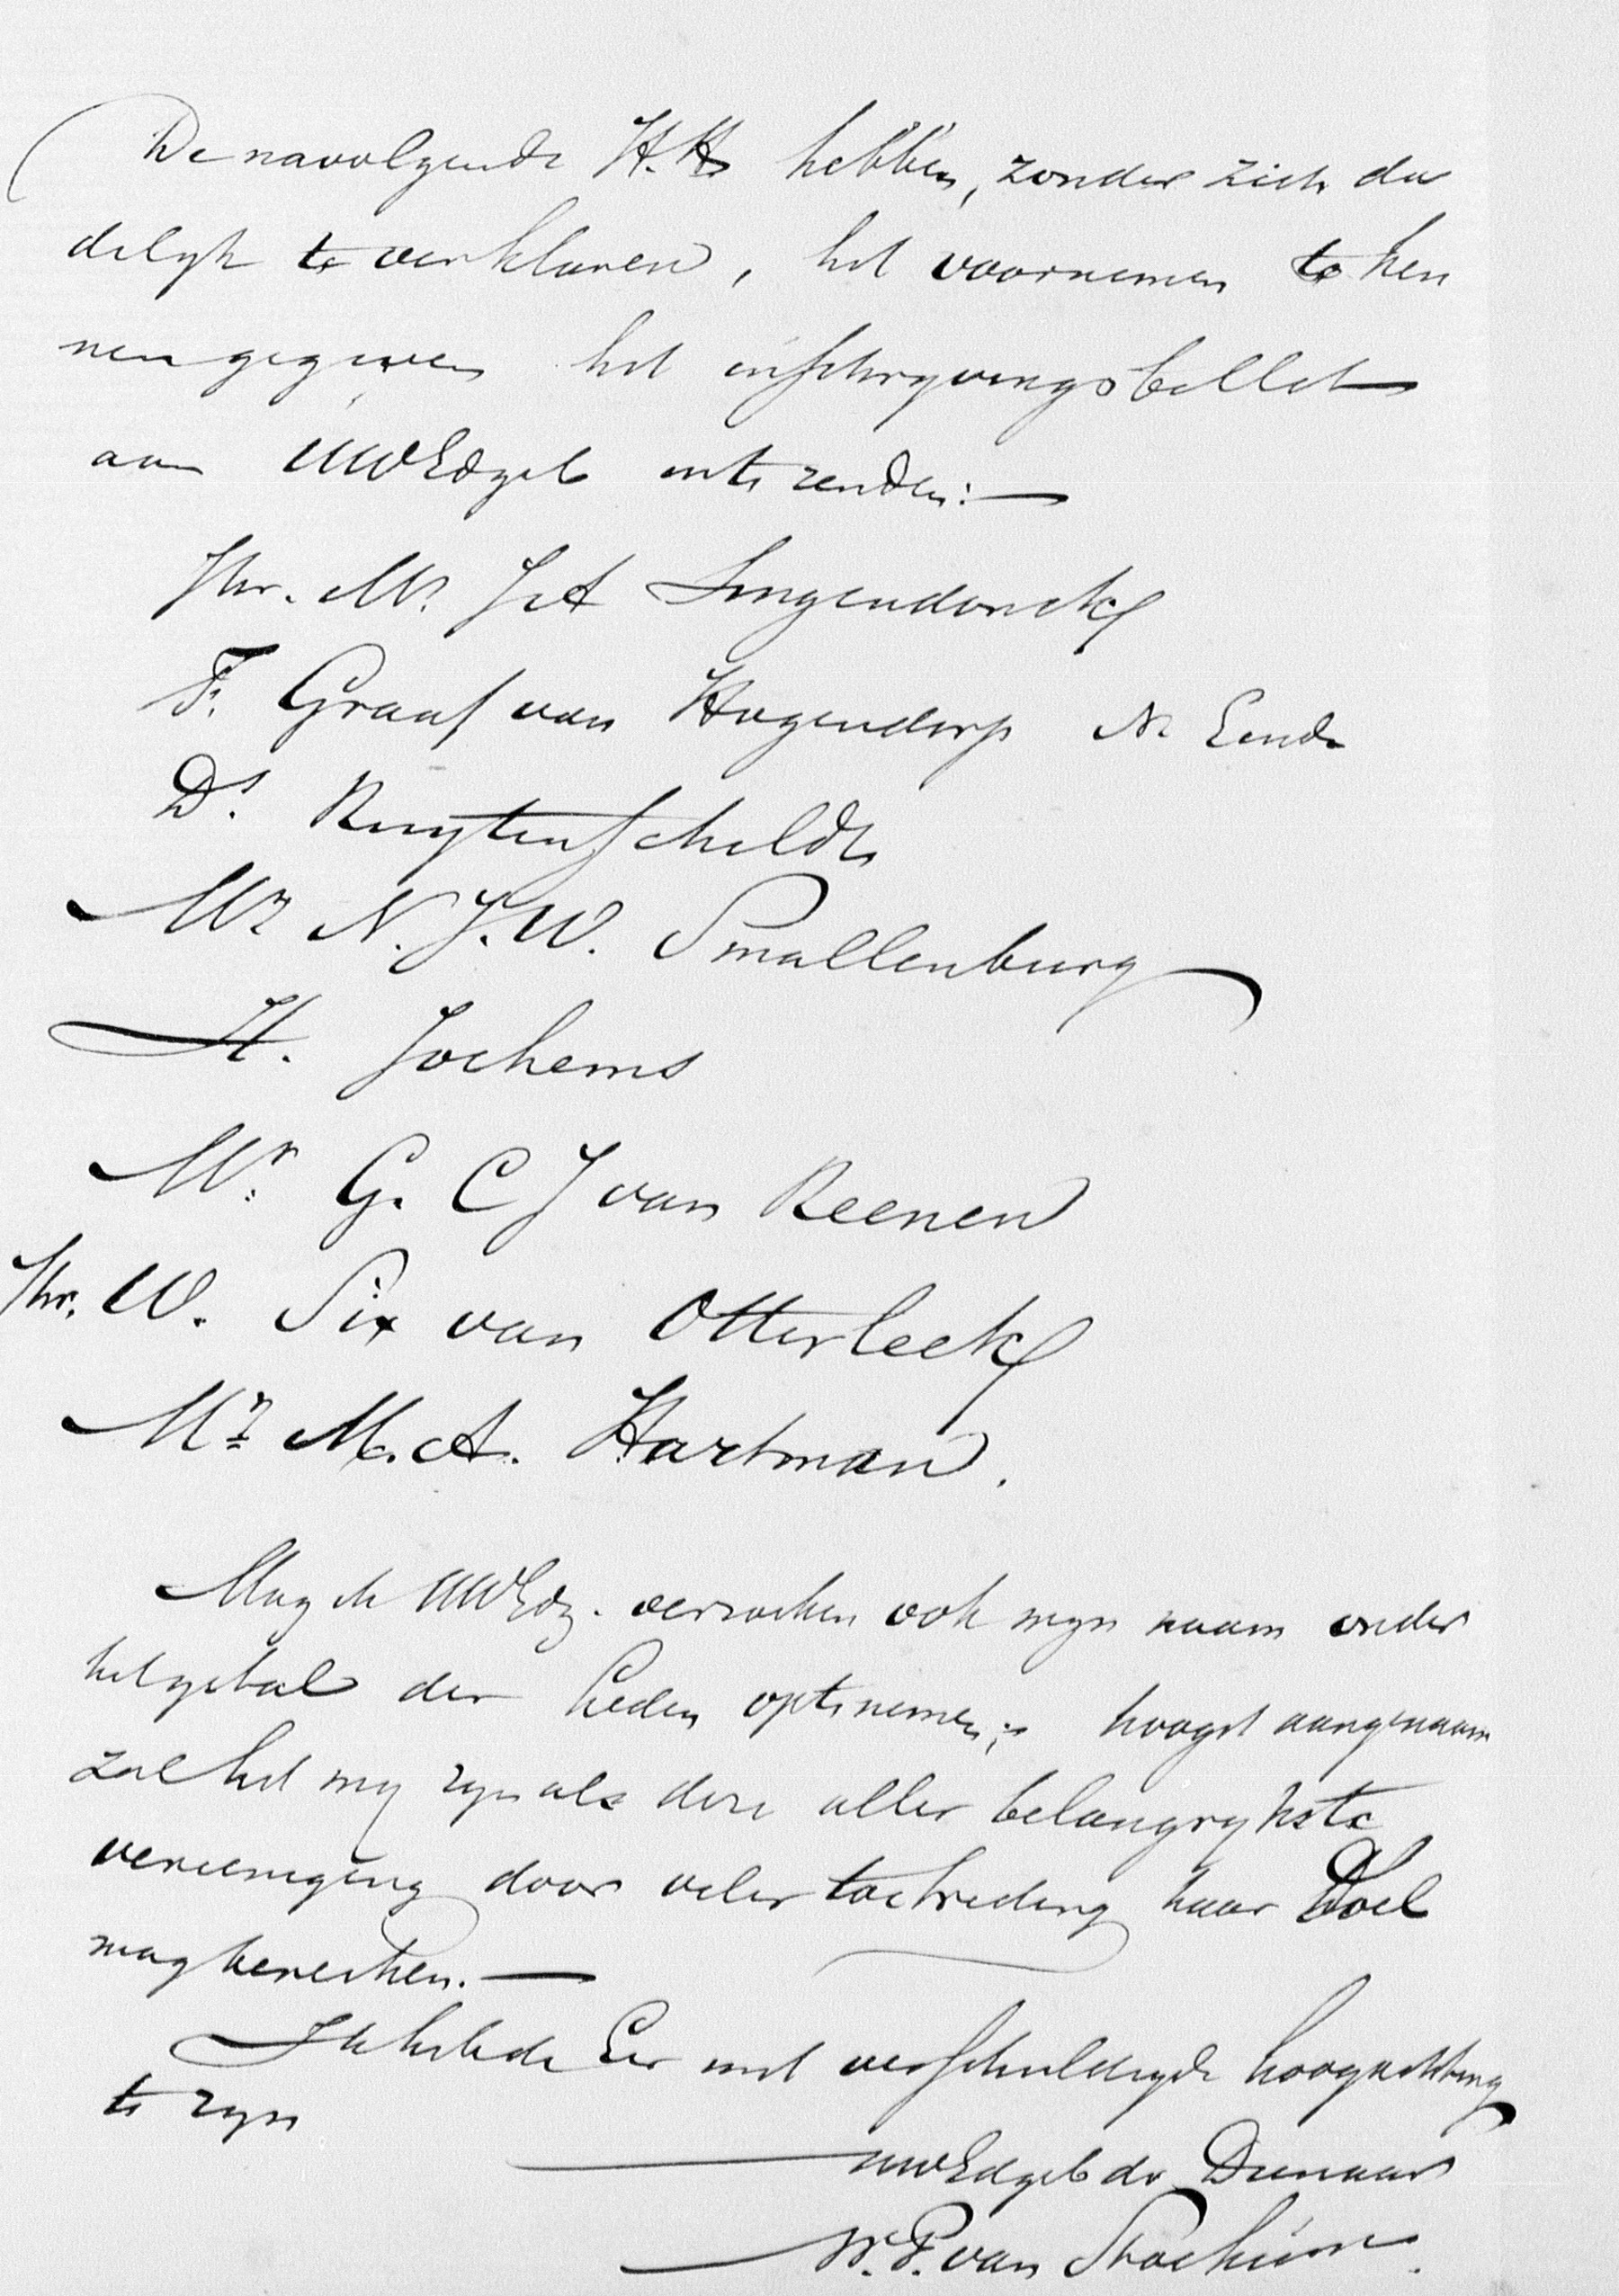 De navolgende H.H. hebben, zonder zich da
delyk te verklaren, het voornemen te ken
nen gegeven het inschryvingsbillet
aan UWEdgeb in te zenden:—
Jhr. Mr. J A Singendonck
F. Graaf van Hogendorp N. Einde
Ds. Ruytenschildt
Mr N. J. W. Smallenburg
H. Jochems
Mr. G. C J van Reenen
Jhr. W. Six van Otterleek
Mr M. A. Hartman.
Mag ik UWEdg. verzoeken ook myn naam onder
het getal der Leden op te nemen; hoogst aangenaam
zal het my zyn als deze aller belangrykste
vereeniging door veler toetreding haar Doel
mag bereiken.—
Ik heb de Eer met verschuldigde hoogachting
te zyn
UWEdgeb dv Dienaar
W. P. van Stockum.